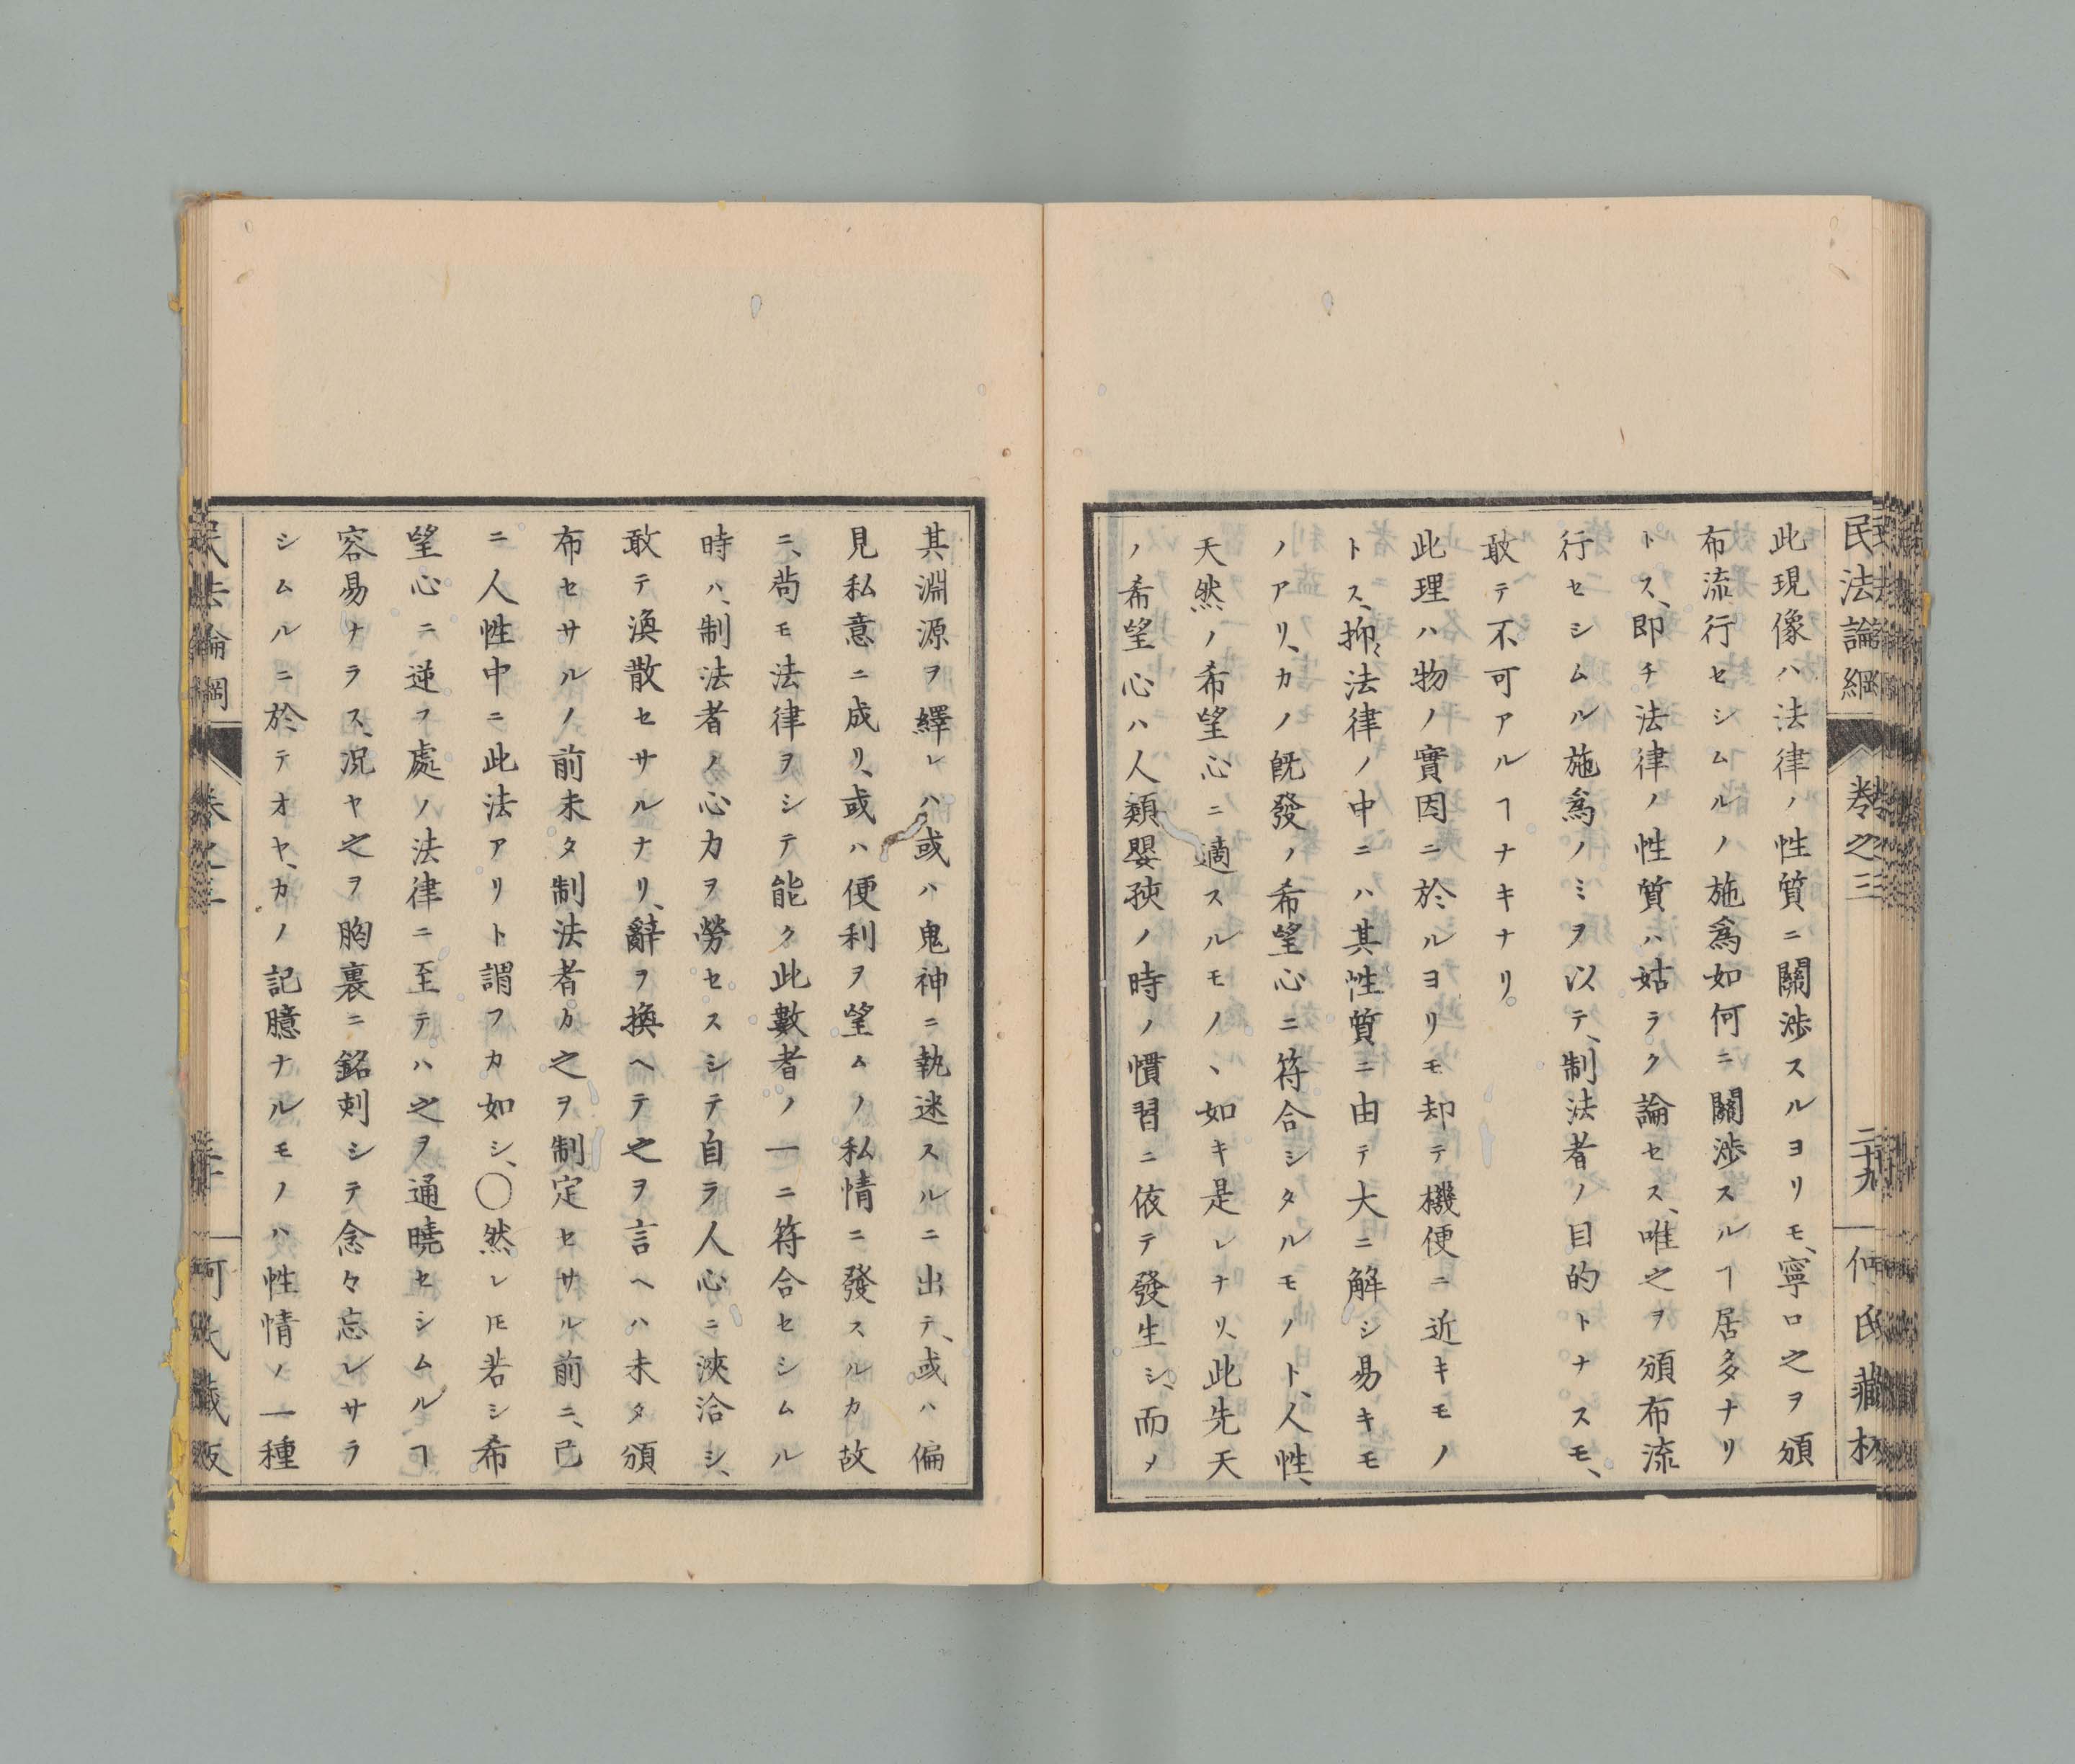 民法論綱
卷之三
二十九
何氏藏板
此現像ハ法律ノ性質ニ關渉スルヨリモ、寧ロ之ヲ頒
布流行セシムルノ施爲如何ニ關渉スルヿ居多ナリ
トス、即チ法律ノ性質ハ姑ラク論セス、唯之ヲ頒布流
行セシムル施爲ノミヲ以テ、制法者ノ目的トナスモ、
敢テ不可アルヿナキナリ。
此理ハ物ノ實因ニ於ルヨリモ却テ機便ニ近キモノ
トス、抑〻法律ノ中ニハ其性質ニ由テ大ニ解シ易キモ
ノアリ、カノ旣發ノ希望心ニ符合シタルモノト、人性、
天然ノ希望心ニ適スルモノヽ如キ是レナリ、此先天
ノ希望心ハ人類嬰孩ノ時ノ慣習ニ依テ發生シ、而ノ
其淵源ヲ繹レハ或ハ鬼神ニ執迷スルニ出テ、或ハ偏
見私意ニ成リ、或ハ便利ヲ望ムノ私情ニ發スルカ故
ニ、苟モ法律ヲシテ能ク此數者ノ一ニ符合セシムル
時ハ、制法者ノ心力ヲ勞セスシテ自ラ人心ニ浹洽シ、
敢テ渙散セサルナリ、辭ヲ換ヘテ之ヲ言ヘハ未タ頒
布セサルノ前未タ制法者カ之ヲ制定セサル前ニ、已
ニ人性中ニ此法アリト謂フカ如シ、〇然レ𪜈若シ希
望心ニ逆フ處ノ法律ニ至テハ之ヲ通曉セシムルヿ
容易ナラス、況ヤ之ヲ胸裏ニ銘刺シテ念々忘レサラ
シムルニ於テオヤ、カノ記臆ナルモノハ性情ノ一種
民法論綱
卷之三
三十
何氏藏版